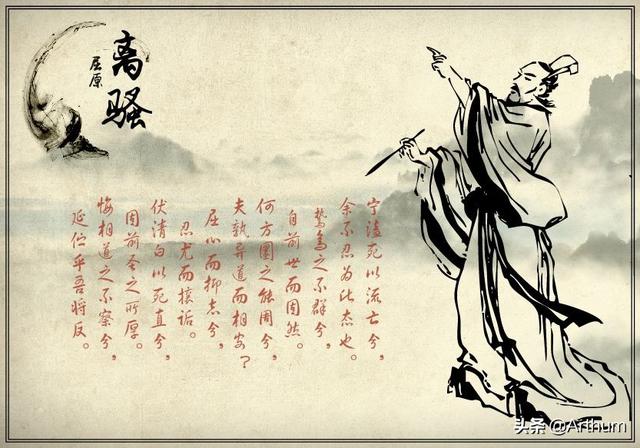 离骚
屈原
宁溘死以流亡兮，
余不忍为此态也。
鸷鸟之不群兮，
自前世而固然。
何方圜之能周兮，
夫孰异道而相安？
屈心而抑志兮，
忍尤而攘诟。
伏清白以死直兮，
固前圣之所厚。
悔相道之不察兮，
延伫乎吾将反。
头条 @Arthurn